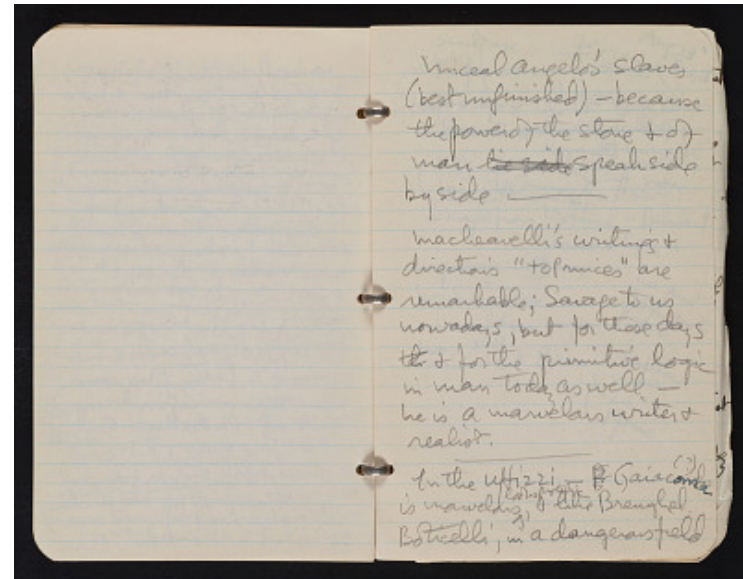 Miceal Angelo's slaves
(best unfinished) – because
the power of the stone & of
man lie side speak side
by side
Macheavelli's writings &
directions "to princes" are
remarkable; Savage to us
nowadays, but for those days
& for the primitive logic
in man today as well –
he is a marvelous writer &
realist.
In the Uffizzi – (?)
is marvelous, & like Breughel
Boticelli, in a dangerous field